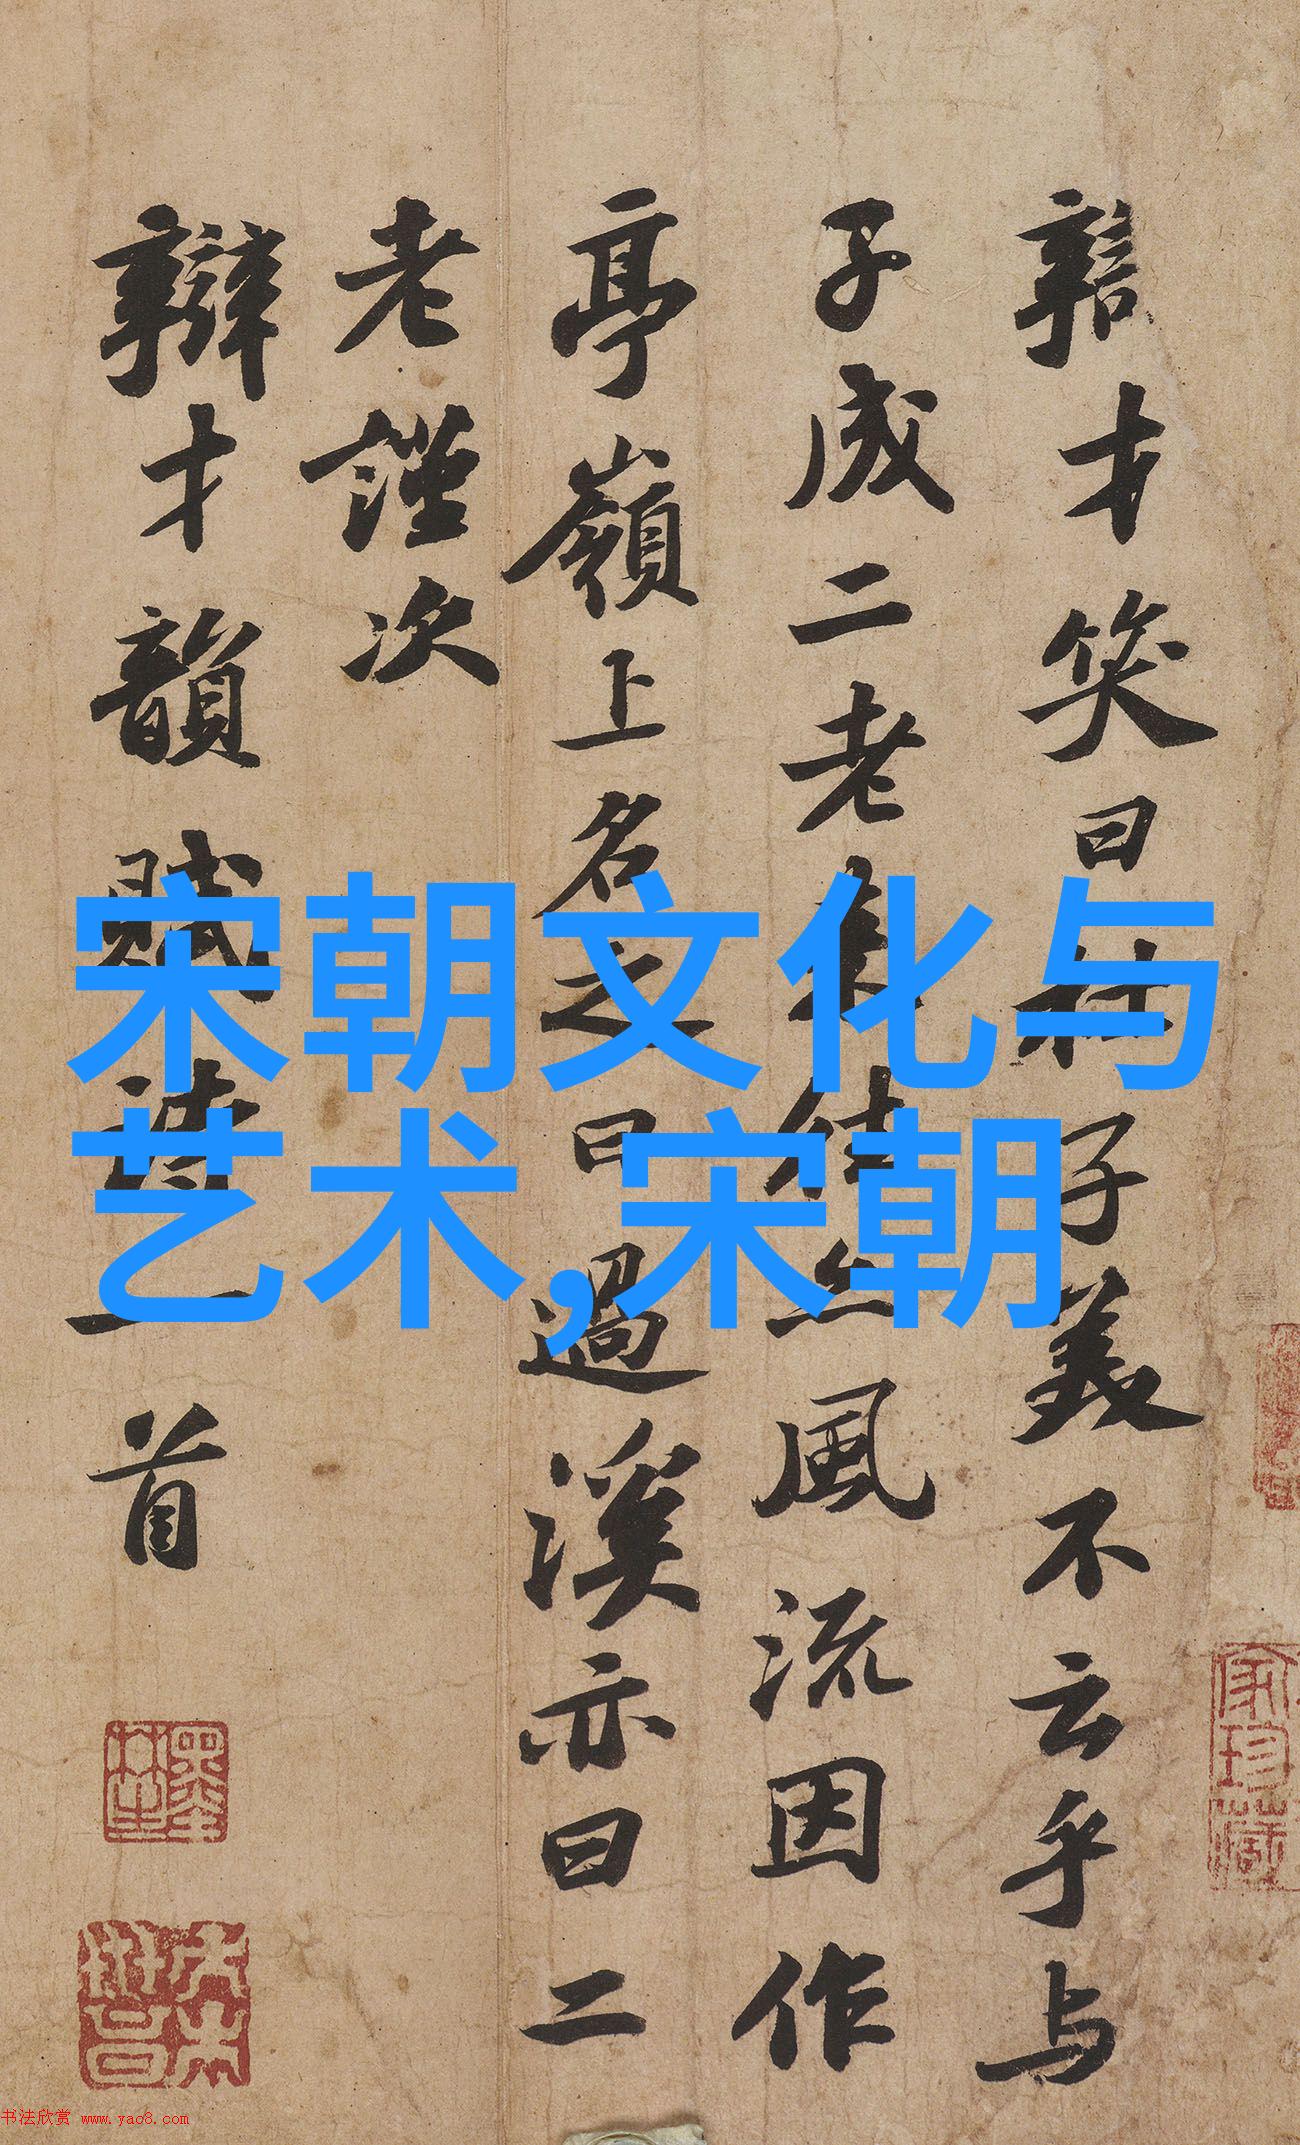 辯才笑曰杜子美不云乎与
子成二老来往亦風流因作
亭嶺上名之曰過溪亦曰二
老謹次
辯才韻賦詩一首
宋朝文化与
艺术,宋朝
家珍藏
书法欣赏 www.yac8.com